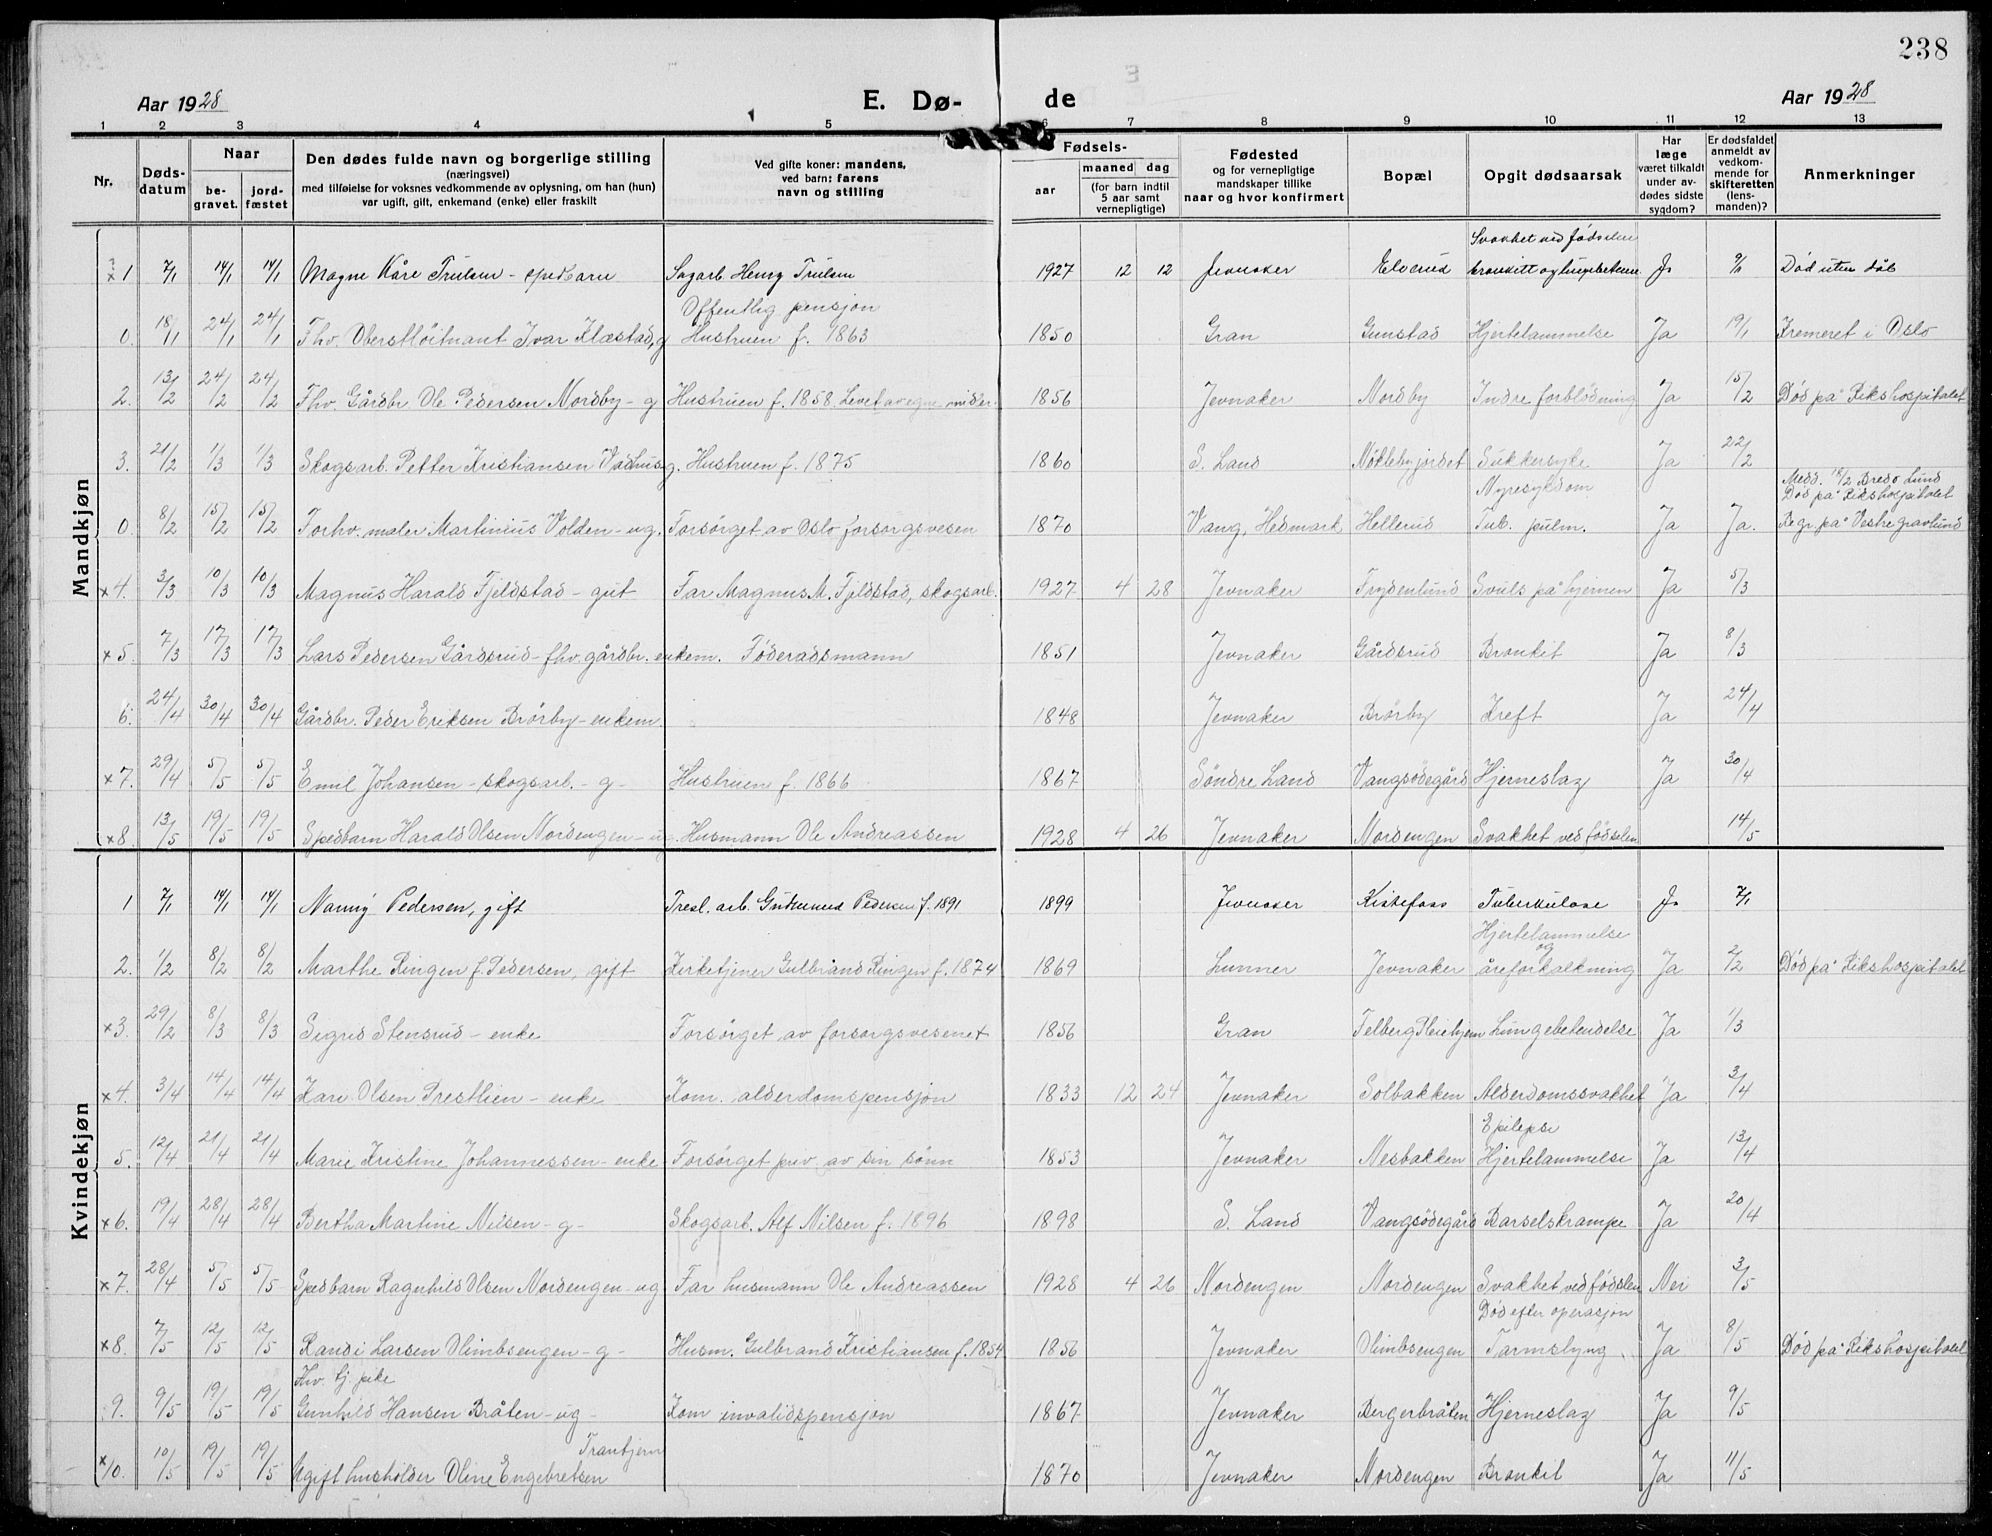 238
Aar 1928
E. Dø-
de
Aar 1928
1 2 3 4 5 6 7 8 9 10 11 12 13
Nr.
Døds-
datum
Naar
be-
gravet.
jord-
fæstet
Den dødes fulde navn og borgerlige stilling
(næringsvel)
med tilføielse for voksnes vedkommende av oplysning, om han (hun)
var ugift, gift, enkemand (enke) eller fraskilt
Ved gifte koner: mandens,
ved barn: farens
navn og stilling
Fødsels-
aar
maaned dag
(for barn indtil
5 aar samt
vernepligtige)
Fødested
og for vernepligtige
mandskaper tillike
naar og hvor konfirmert
Bopæl
Opgit dødsaarsak
Har
læge
været tilkaldt
under av-
dødes sidste
sygdom?
Er dødsfaldet
anmeldt av
vedkom-
mende for
skifteretten
(lens-
manden)?
Anmerkninger
Mandkjøn
Svakhet ved fødselen
x1 7/1 14/1 14/1 Magne Kåre Trulsen - spedbarn Sagarb. Henry Trulsen 1927 12 12 Jevnaker Elverud bronkitt og Ja 9/1 Død uten dåb
Offentlig pensjon
0. 18/1 24/1 24/1 Fhv. Oberstløitnant Ivar Klæstad, g Hustruen f. 1863 1850 Gran Gunstad Hjertelammelse Ja 19/1 Kremeret i Oslo
2. 13/2 24/2 24/2 Fhv. Gårdbr. Ole Pedersen Nordby - g Hustruen f. 1858. Levet av egne midler. 1856 Jevnaker Nordby Indre forblødning Ja 15/2 Død på Rikshospitalet
3. 21/2 1/3 1/3 Skogsarb. Petter Kristiansen Vadhus g. Hustruen f. 1875 1860 S. Land Nøklebyjordet Sukkersyke Ja 22/2
Nyresykdom
Medd. 18/2 Bredo Lund
Død på Rikshospitalet
0. 8/2 15/2 15/2 Forhv. maler Martinius Volden - ug. Forsørget av Oslo forsorgsvesen 1870 Vang, Hedmark Hellerud Tub. pulm. Ja Ja. Begr. på Vestre gravlund
x4. 3/3 10/3 10/3 Magnus Harald Fjeldstad - gut Far Magnus M. Fjeldstad, skogsarb. 1927 4 28 Jevnaker Frydenlund Svuls på hjernen Ja 5/3
x5. 7/3 17/3 17/3 Lars Pedersen Gårdsrud - fhv. gårdbr. enkem. Føderadsmann 1851 Jevnaker Gårdsrud Bronkit Ja 8/3
6. 24/4 30/4 30/4 Gårdbr. Peder Eriksen Brørby - enkem. 1848 Jevnaker Brørby Kreft Ja 24/4
x7. 29/4 5/5 5/5 Emil Johansen - skogsarb. - g - Hustruen f. 1866 1867 Søndre Land Vangsødegård Hjerneslag Ja 30/4
x8. 13/5 19/5 19/5 Spedbarn Harald Olsen Nordengen - ug. Husmann Ole Andreassen 1928 4 26 Jevnaker Nordengen Svakhet ved fødselen 14/5
Kvindekjøn
1 7/1 14/1 14/1 Nanny Pedersen, gift Tresl. arb. Gudmund Pedersen f. 1891 1899 Jevnaker Kistefoss Tuberkulose Ja 7/1
Hjertelammelse
og
2. 1/2 8/2 8/2 Marthe Ringen f. Pedersen, gift Kirketjener Gulbrand Ringen f. 1874 1869 Lunner Jevnaker åreforkalkning Ja 2/2 Død på Rikshospitalet
x3. 29/2 8/3 8/3 Sigrid Stensrud - enke Forsørget av forsorgsvesenet 1856 Gran Felberg Pleiehjem Lungebetendelse Ja 1/3
x4. 3/4 14/4 14/4 Kari Olsen Prestlien - enke Kom. alderdomspensjon 1833 12 24 Jevnaker Solbakken Alderdomssvakhet Ja 3/4
Epilepsi
5. 12/4 21/4 21/4 Marie Kristine Johannessen - enke Forsørget priv. av sin sønn 1853 Jevnaker Nesbakken Hjertelammelse Ja 13/4
x6. 19/4 28/4 28/4 Bertha Martine Nilsen - g - Skogsarb. Alf Nilsen f. 1896 1898 S. Land Vangsødegård Barselskrampe Ja 20/4
x7. 28/4 5/5 5/5 Spedbarn Ragnhild Olsen Nordengen - ug Far husmann Ole Andreassen 1928 4 26 Nordengen Nordengen Svakhet ved fødslen Nei 3/5
Død efter operasjon
x8. 7/5 12/5 12/5 Randi Larsen Olimbsengen - g - Husm. Gulbrand Kristiansen f. 1854 1856 Jevnaker Olimbsengen Tarmslyng Ja 8/5 Død på Rikshospitalet
Fhv. tj. pike
9. 9/5 19/5 19/5 Gunhild Hansen Bråten - ug - Kom invalidspensjon 1867 Jevnaker Bergerbråten Hjerneslag Ja 9/5
Trantjern
x10. 10/5 19/5 19/5 Ugift husholder Oline Engebretsen 1870 Jevnaker Nordengen Bronkit Ja 11/5